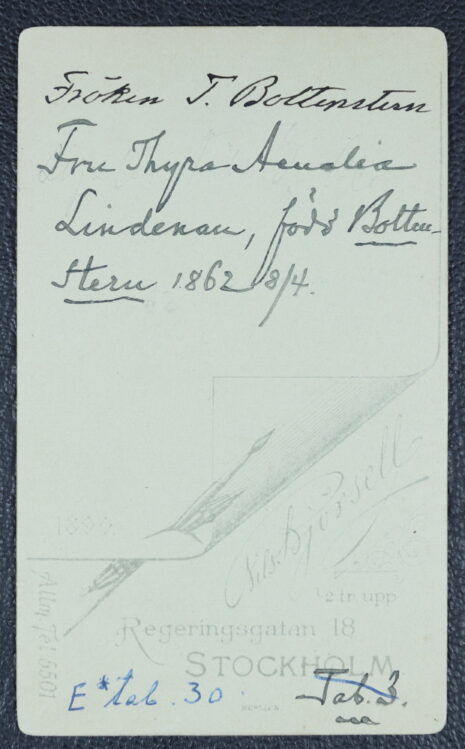 Fröken T. Boltenstern
Fru Thyra Amalia
Lindenau, född Bolten-
stern 1862 8/4.
Nils Björsell
½ tr. upp
Allm. Tel. 5501
Regeringsgatan 18
STOCKHOLM
E* tab. 30.
Tab. 3.